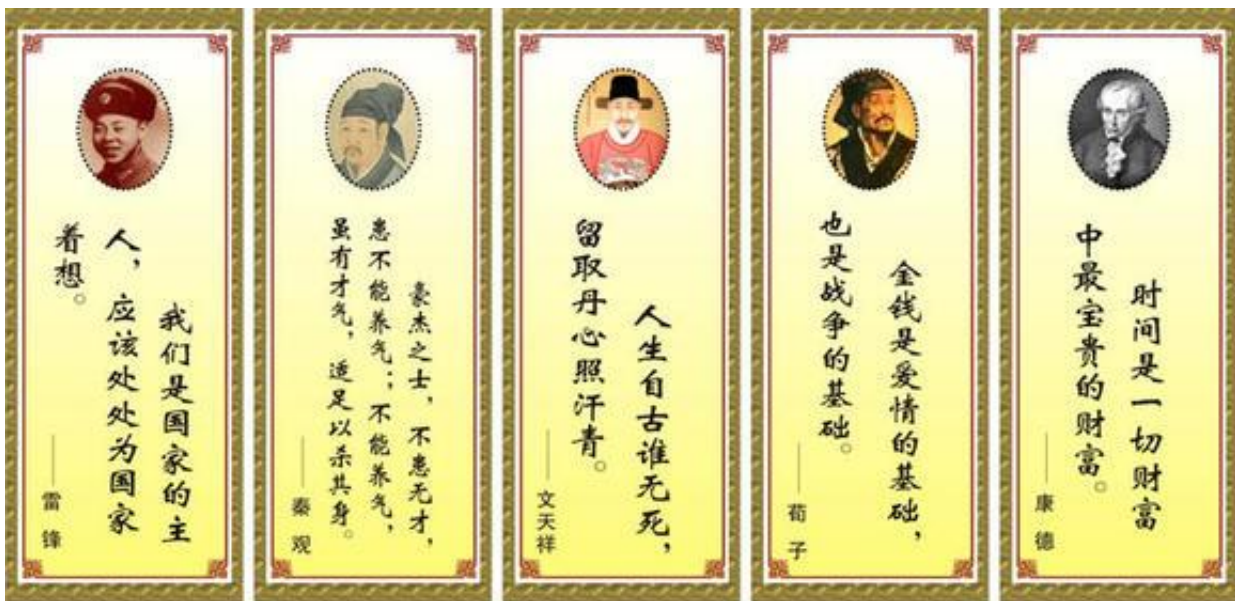 我们是国家的主
人，应该处处为国家
着想。
——雷锋
豪杰之士，不患无才，
患不能养气；不能养气，
虽有才气，适足以杀其身。
——秦观
人生自古谁无死，
留取丹心照汗青。
——文天祥
金钱是爱情的基础，
也是战争的基础。
——荀子
时间是一切财富
中最宝贵的财富。
——康德